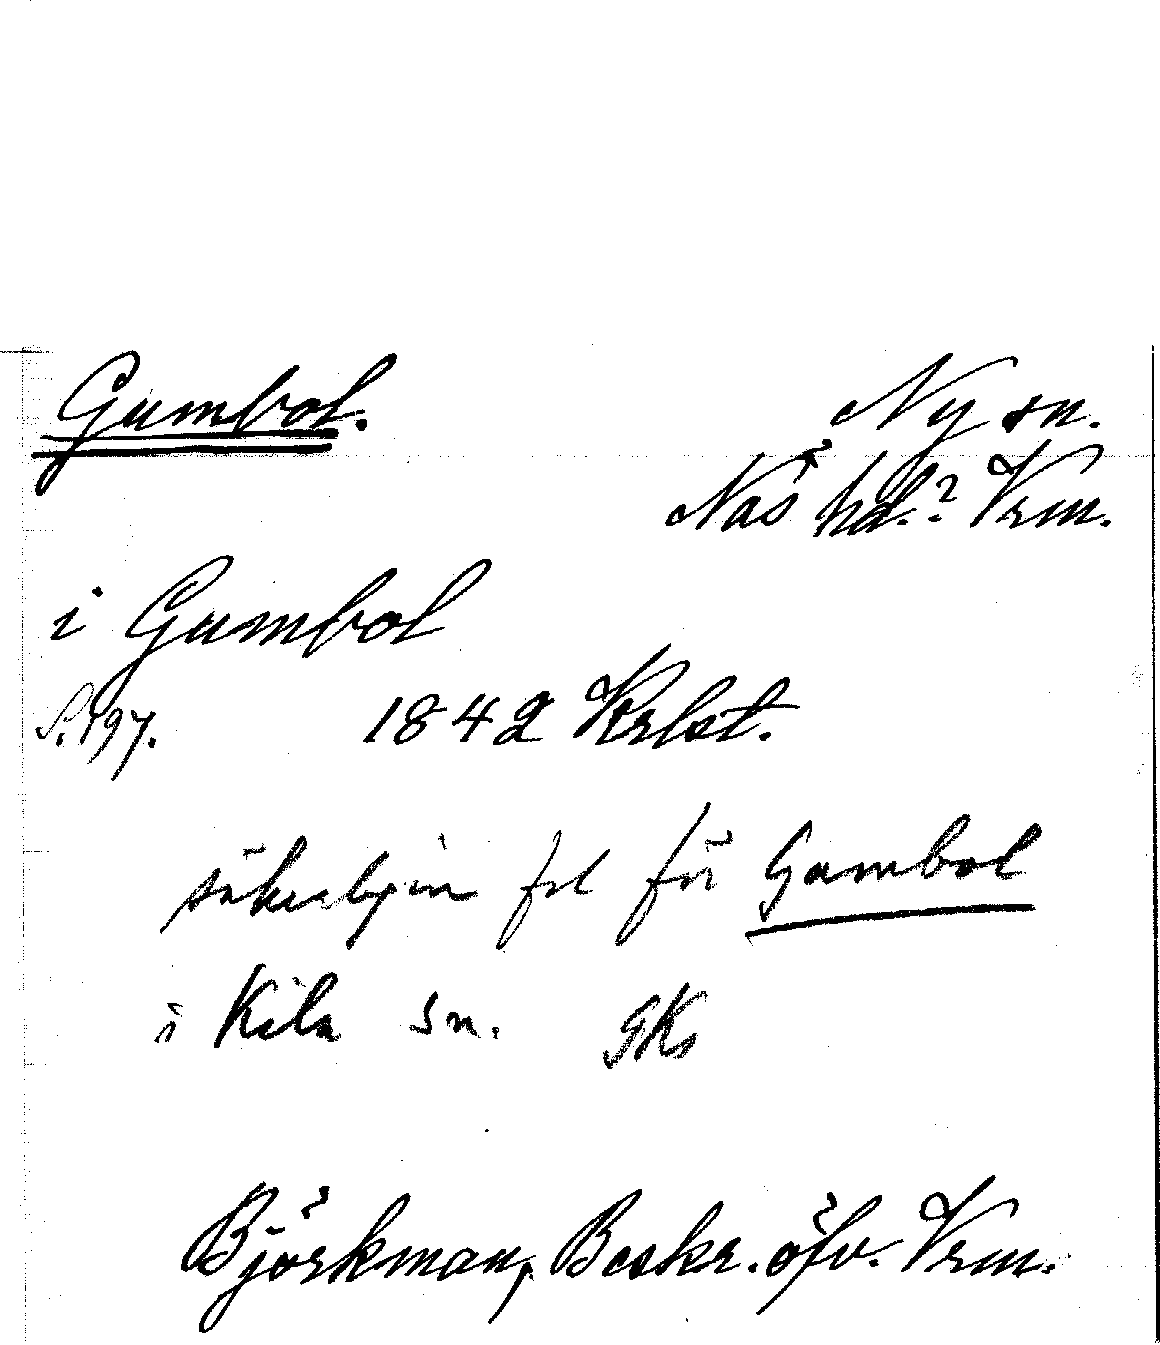 Gumbol. Ny sn.
Näs hd.? Vrm.
i Gumbol
S. 197. 1842 Krlst.
säkerligen fel för Gambol
i Kila sn. GKs
Björkman, Beskr. öfv. Vrm.